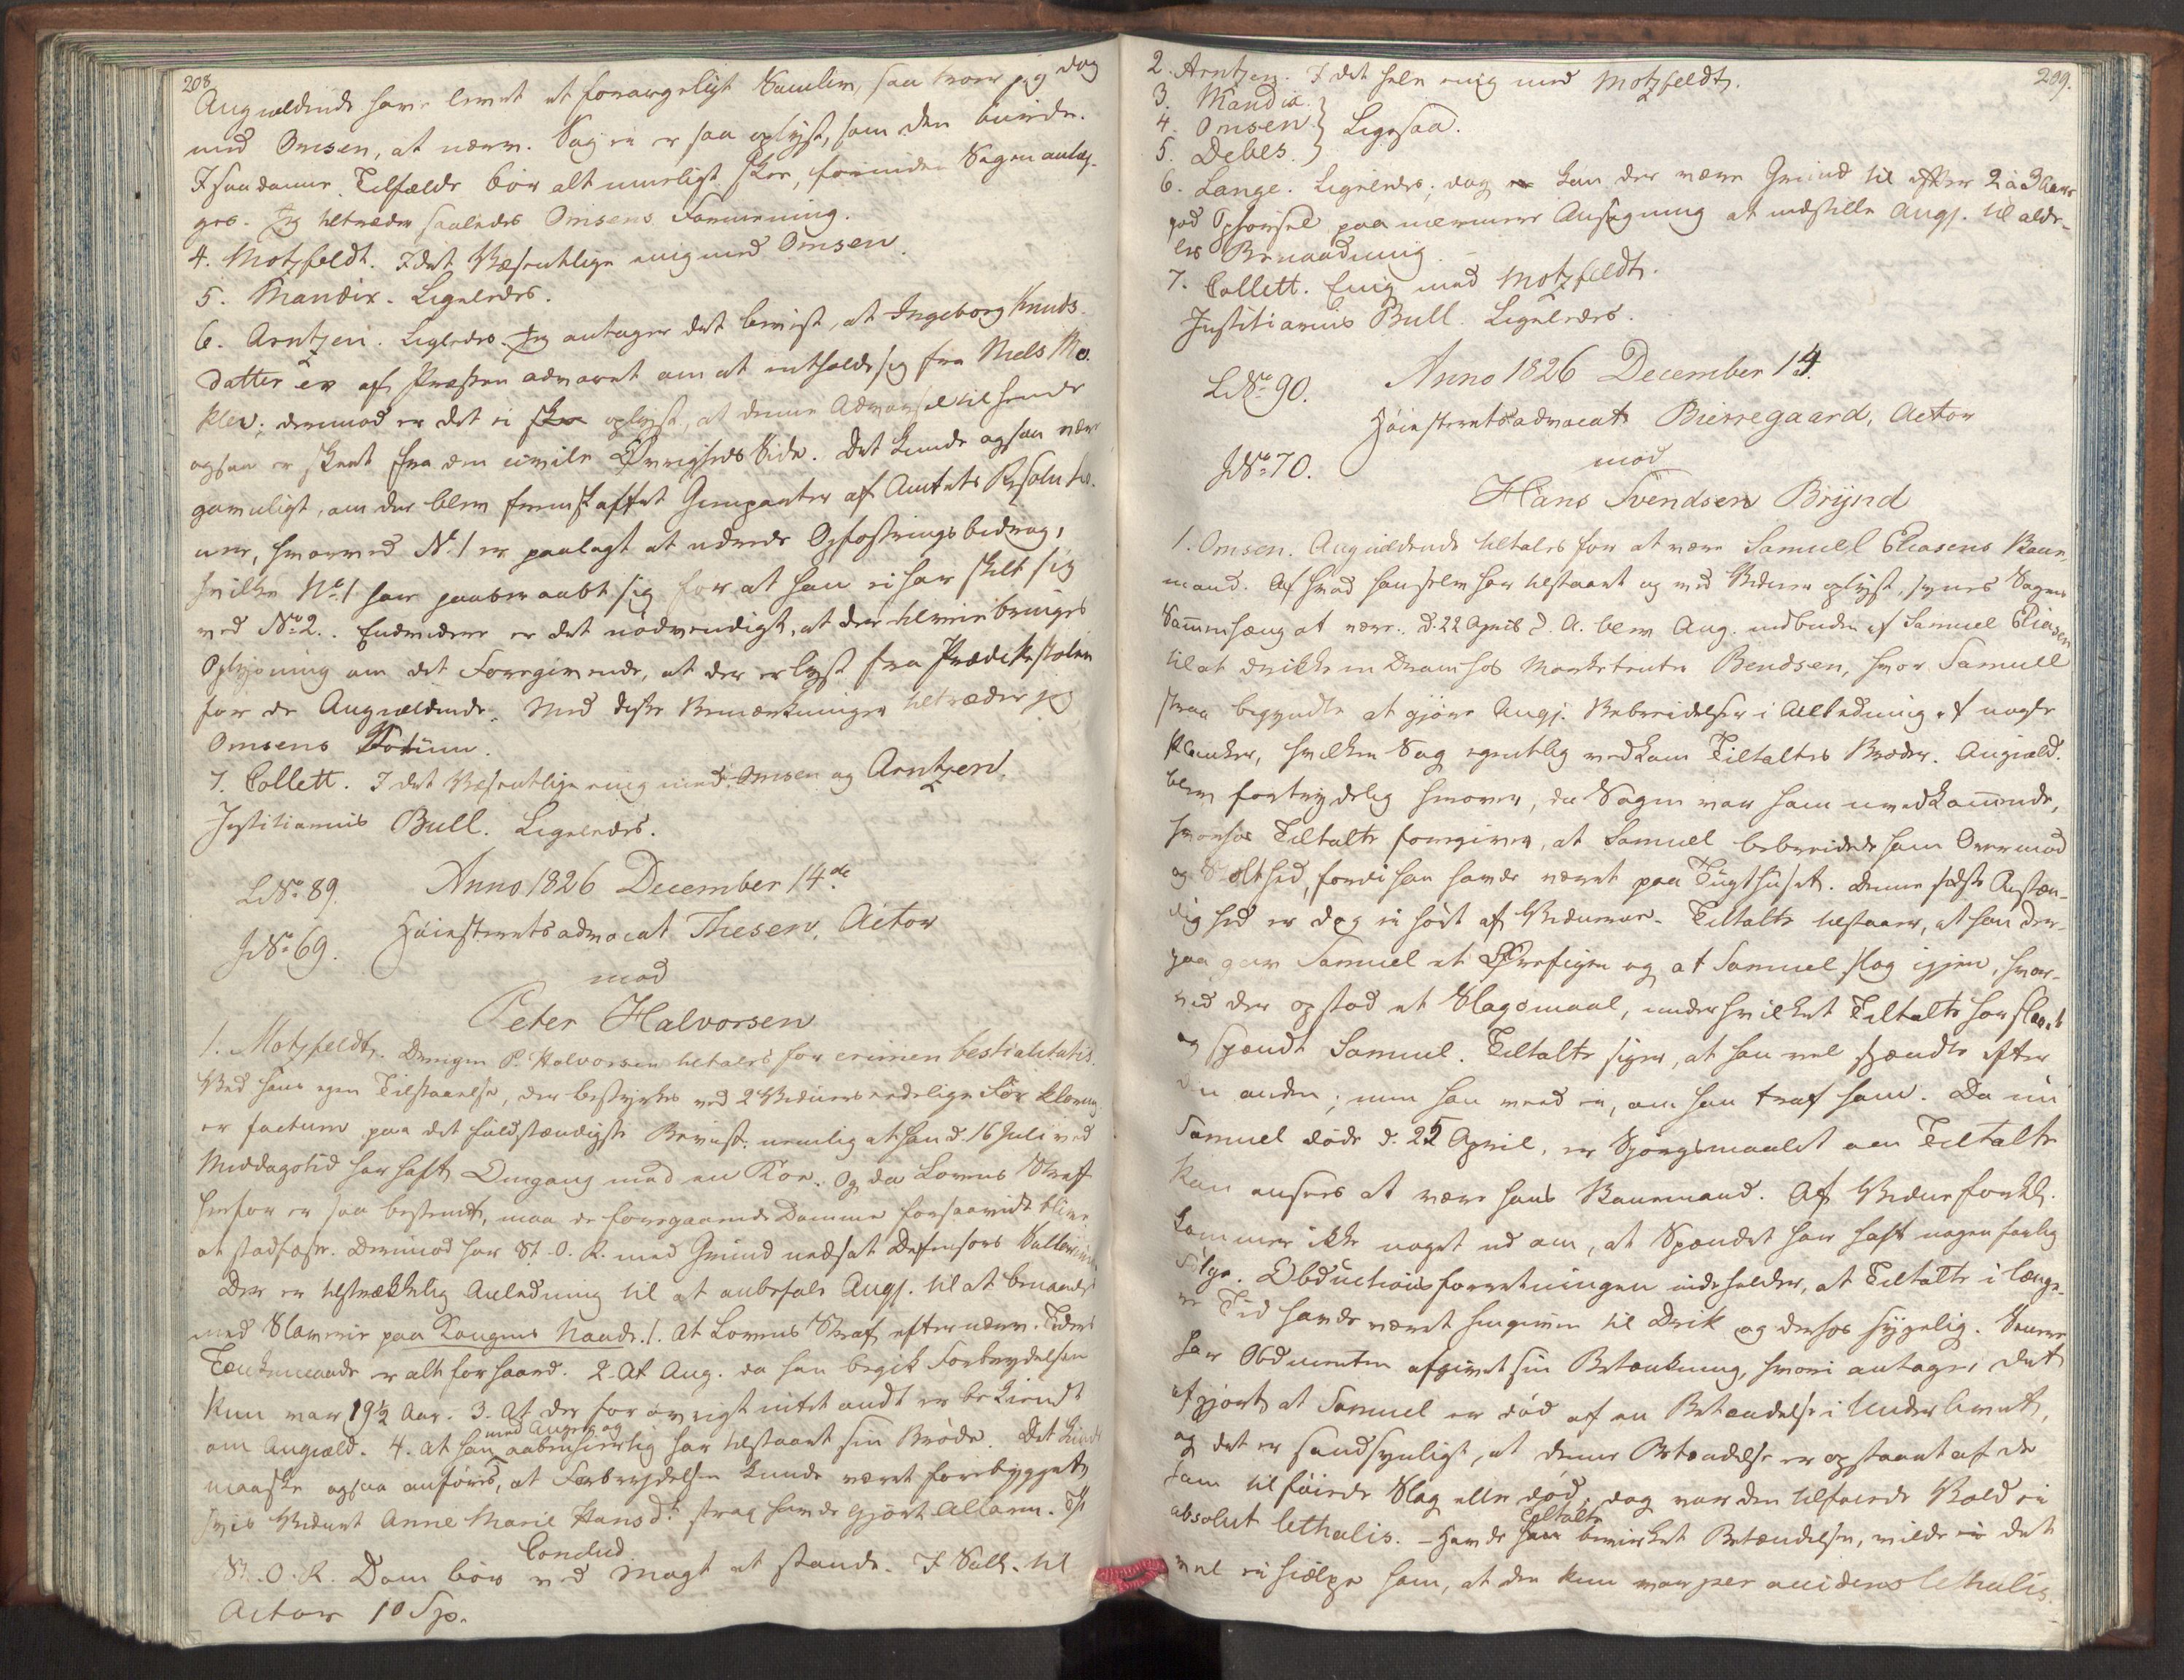 208.
Angieldende have levet et forargeligt Samliv, saa troer jeg dog
med Omsen, at nærv. Sag ei er saa oplyst, som den burde.
I saadanne Tilfælde bör alt mueligt skee, forinden Sagen anlæg-
ges. Jeg tiltræder saaledes Omsens Formening.
4. Motzfeldt. I det Væsentlige enig med Omsen.
5. Mandix. Ligeledes.
6. Arntzen. Ligeledes. Jeg antager det beviist, at Ingeborg Knuds-
datter er af Præsten advaret om at entholde sig fra Niels Mo-
klev; derimod er det ei oplyst, at denne Advarsel til hende
ogsaa er skeet fra den civile Övrigheds Side. Det kunde ogsaa være
gavnligt, om der blev fremskaffet Gienparter af Amtets Resolutio-
ner, hvorved No. 1 er paalagt at udrede Opfostringsbidrag,
hvilke No. 1 har paaberaabt sig for at han ei har skilt sig
ved No. 2. Endvidere er det nödvendigt, at der tilveiebringes
Oplysning om det Foregivende, at der er lyst fra Prædikestolen
for de Angieldende. Med disse Bemærkninger tiltræder jeg
Omsens Votum.
7. Collett. I det Væsentlige enig med Omsen og Arntzen.
Justitiarius Bull. Ligeledes.
LNo. 89. Anno 1826 December 14de
JNo. 69. Höiesteretsadvocat Thesen, Actor
mod
Peter Halvorsen
1. Motzfeldt. Drengen P. Halvorsen tiltales for crimen bestialitatis.
Ved hans egen Tilstaaelse, der bestyrkes ved 2 Vidners eedelige Forklaring
er factum paa det fuldstændigste Beviist: nemlig at han d. 16 Juli ved
Middagstid har haft Omgang med en Koe. Og da Lovens Straf
herfor er saa bestemt, maa de foregaaende Domme forsaavidt blive
at stadfæste. Derimod har St. O. R. med Grund nedsat Defensors
Der er tilstrækkelig Anledning til at anbefale Angj. til at benaades
med Slaverie paa Kongens Naade. 1. At Lovens Straf efter nærv. Tiders
Tænkemaade er alt for haard. 2. At Ang. da han begik Forbrydelsen
kun var 19½ Aar. 3. At der for övrigt intet ondt er bekiendt
om Angield. 4. At han med Anger og aabenhiertig har tilstaaet sin Bröde. Det kunde
maaske ogsaa anföres, at Forbrydelsen kunde været forebygget
hvis Vidnet Anne Marie Hansd. strax havde gjort Allarm. Th
Conclud.
St. O. R. Dom bör ved Magt at stande. I Sall. til
Actor 10 Sp.
209.
2. Arntzen. I det hele enig med Motzfeldt.
3. Mandix.
4. Omsen } Ligesaa.
5. Debes.
6. Lange. Ligeledes; dog kan der være Grund til efter 2 à 3 Aars
god Opförsel paa nærmere Ansögning at indstille Angj. til alde-
les Benaadning.
7. Collett. Enig med Motzfeldt.
Justitiarius Bull. Ligeledes.
LNo. 90. Anno 1826 December 14.
Höiesteretsadvocat Bierregaard, Actor
JNo. 70. mod
Hans Svendsen Brÿnd
1. Omsen. Angieldende tiltales for at være Samuel Eliasens Bane-
mand. Af hvad han selv har tilstaaet og ved Vidner oplyst, synes Sagens
Sammenhæng at være. D. 22 April d. A. blev Ang. indbuden af Samuel Eliasen
til at drikke en Dram hos Marketenter Bendsen, hvor Samuel
strax begyndte at gjöre Angj. Bebreidelser i Anledning af nogle
Planker, hvilken Sag egentlig vedkom Tiltaltes Broder. Angield.
blev fortrydelig herover, da Sagen var ham uvedkommende,
hvorhos Tiltalte foregiver, at Samuel bebreidede ham Overmod
og Stolthed, fordi han havde været paa Tugthuset. Denne sidste Omstæn-
dighed er dog ei hört af Vidnerne. Tiltalte tilstaaer, at han der-
paa gav Samuel et Örefigen og at Samuel slog igjen, hvor-
ved der opstod et Slagsmaal, under hvilket Tiltalte har slaaet
og spændt Samuel. Tiltalte siger, at han vel spændte efter
den anden; men han veed ei, om han traf ham. Da nu
Samuel döde d. 25 April, er Spörgsmaalet om Tiltalte
kan ansees at være hans Banemand. Af Vidneforkl.
kommer ikke noget ud om, at Spændet har haft nogen farlig
Fölge. Obductionsforretningen indeholder, at Tiltalte i længe-
re Tid havde været hengiven til Drik og derhos sygelig. Senere
har Obducenten afgivet sin Betænkning, hvori antages det
afgjort at Samuel er död af en Betændelse i Underlivet,
og det er sandsynligt, at denne Betændelse er opstaaet af de
ham tilföiede Slag eller död, dog var den tilföiede Vold ei
absolut lethalis. – Havde Tiltalte bevirket Betændelsen, vilde det
vel ei hielpe ham, at den kun var per accidens lethalis.